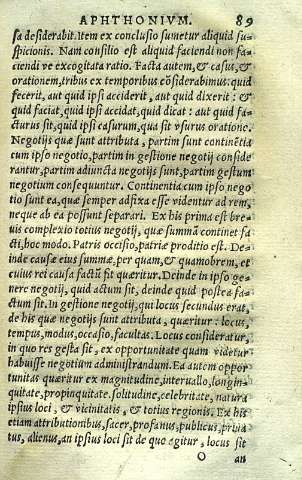 APHTHONIVM. 89
sa desiderabit. Item ex conclusio sumetur aliquid su-
spicionis. Nam consilio est aliquid faciendi non fa-
ciendi ve excogitata ratio. Facta autem, & casus, &
orationem, tribus ex temporibus cõsiderabimus: quid
fecerit, aut quid ipsi acciderit, aut quid dixerit: &
quid faciat, quid ipsi accidat, quid dicat: aut quid fa-
cturus sit, quid ipsi casurum, qua sit vsurus oratione.
Negotijs quæ sunt attributa, partim sunt continẽtia
cum ipso negotio, partim in gestione negotij conside
rantur, partim adiuncta negotij sunt, partim gestum
negotium consequuntur. Continentia cum ipso nego
tio sunt ea, quæ semper adfixa esse videntur ad rem,
neque ab ea possunt separari. Ex his prima est bre-
uis complexio totius negotij, quæ summã continet fa
cti, hoc modo. Patris occisio, patriæ proditio est. De-
inde causæ eius summæ, per quam, & quamobrem, et
cuius rei causa factũ sit quæritur. Deinde in ipso ge-
nere negotij, quid actum sit, deinde quid postea fa-
ctum sit. In gestione negotij, qui locus secundus erat,
de his quæ negotijs sunt attributa, quæritur: locus,
tempus, modus, occasio, facultas. Locus consideratur,
in quo res gesta sit, ex opportunitate quam videtur
habuisse negotium administrandum. Ea autem oppor
tunitas quæritur ex magnitudine, interuallo, longin-
quitate, propinquitate. solitudine, celebritate, natura
ipsius loci, & vicinitatis, & totius regionis. Ex his
etiam attributionibus, sacer, profanus, publicus, priua
tus, alienus, an ipsius loci sit de quo agitur, locus sit
O an